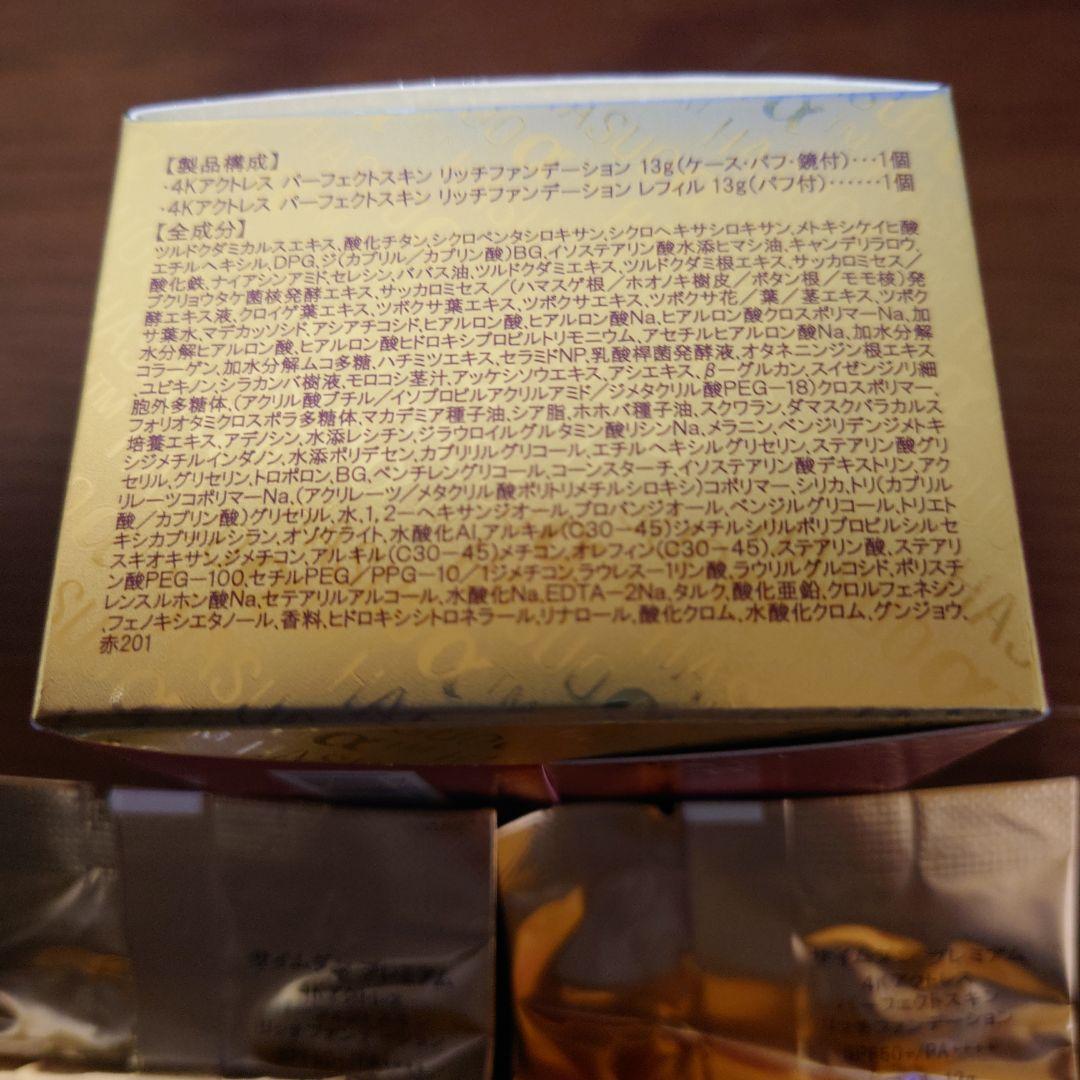 【製品構成】
・4Kアクトレス パーフェクトスキン リッチファンデーション 13g(ケース・パフ・鏡付)…1個
・4Kアクトレス パーフェクトスキン リッチファンデーション レフィル 13g(パフ付)……1個
【全成分】
ツルドクダミカルスエキス、酸化チタン、シクロペンタシロキサン、シクロヘキサシロキサン、メトキシケイヒ酸
エチルヘキシル、DPG、ジ(カプリル/カプリン酸)BG、イソステアリン酸水添ヒマシ油、キャンデリラロウ、
酸化鉄、ナイアシンアミド、セレシン、ババス油、ツルドクダミエキス、ツルドクダミ根エキス、サッカロミセス/
ブクリョウタケ菌核発酵エキス、サッカロミセス/(ハマスゲ根/ホオノキ樹皮/ボタン根/モモ核)発
酵エキス液、クロイゲ葉エキス、ツボクサ葉エキス、ツボクサエキス、ツボクサ花/葉/茎エキス、ツボク
サ葉水、マデカッソシド、アシアチコシド、ヒアルロン酸、ヒアルロン酸Na、ヒアルロン酸クロスポリマーNa、加
水分解ヒアルロン酸、ヒアルロン酸ヒドロキシプロピルトリモニウム、アセチルヒアルロン酸Na、加水分解
コラーゲン、加水分解ムコ多糖、ハチミツエキス、セラミドNP、乳酸桿菌発酵液、オタネニンジン根エキス
ユビキノン、シラカンバ樹液、モロコシ茎汁、アッケシソウエキス、アシエキス、β-グルカン、スイゼンジノリ細
胞外多糖体、(アクリル酸ブチル/イソプロピルアクリルアミド/ジメタクリル酸PEG-18)クロスポリマー、
フォリオタミクロスポラ多糖体、マカデミア種子油、シア脂、ホホバ種子油、スクワラン、ダマスクバラカルス
培養エキス、アデノシン、水添レシチン、ジラウロイルグルタミン酸リシンNa、メラニン、ベンジリデンジメトキ
シジメチルインダノン、水添ポリデセン、カプリリルグリコール、エチルヘキシルグリセリン、ステアリン酸グリ
セリル、グリセリン、トロポロン、BG、ペンチレングリコール、コーンスターチ、イソステアリン酸デキストリン、アク
リレーツコポリマーNa、(アクリレーツ/メタクリル酸ポリトリメチルシロキシ)コポリマー、シリカ、トリ(カプリル
酸/カプリン酸)グリセリル、水、1,2-ヘキサンジオール、プロパンジオール、ベンジルグリコール、トリエト
キシカプリリルシラン、オゾケライト、水酸化Al、アルキル(C30-45)ジメチルシリルポリプロピルシルセ
スキオキサン、ジメチコン、アルキル(C30-45)メチコン、オレフィン(C30-45)、ステアリン酸、ステアリ
ン酸PEG-100、セチルPEG/PPG-10/1ジメチコン、ラウレス-1リン酸、ラウリルグルコシド、ポリスチ
レンスルホン酸Na、セテアリルアルコール、水酸化Na、EDTA-2Na、タルク、酸化亜鉛、クロルフェネシン、
フェノキシエタノール、香料、ヒドロキシシトロネラール、リナロール、酸化クロム、水酸化クロム、グンジョウ、
赤201
プレミアム
4Kアクトレス
パーフェクトスキン
リッチファンデーション